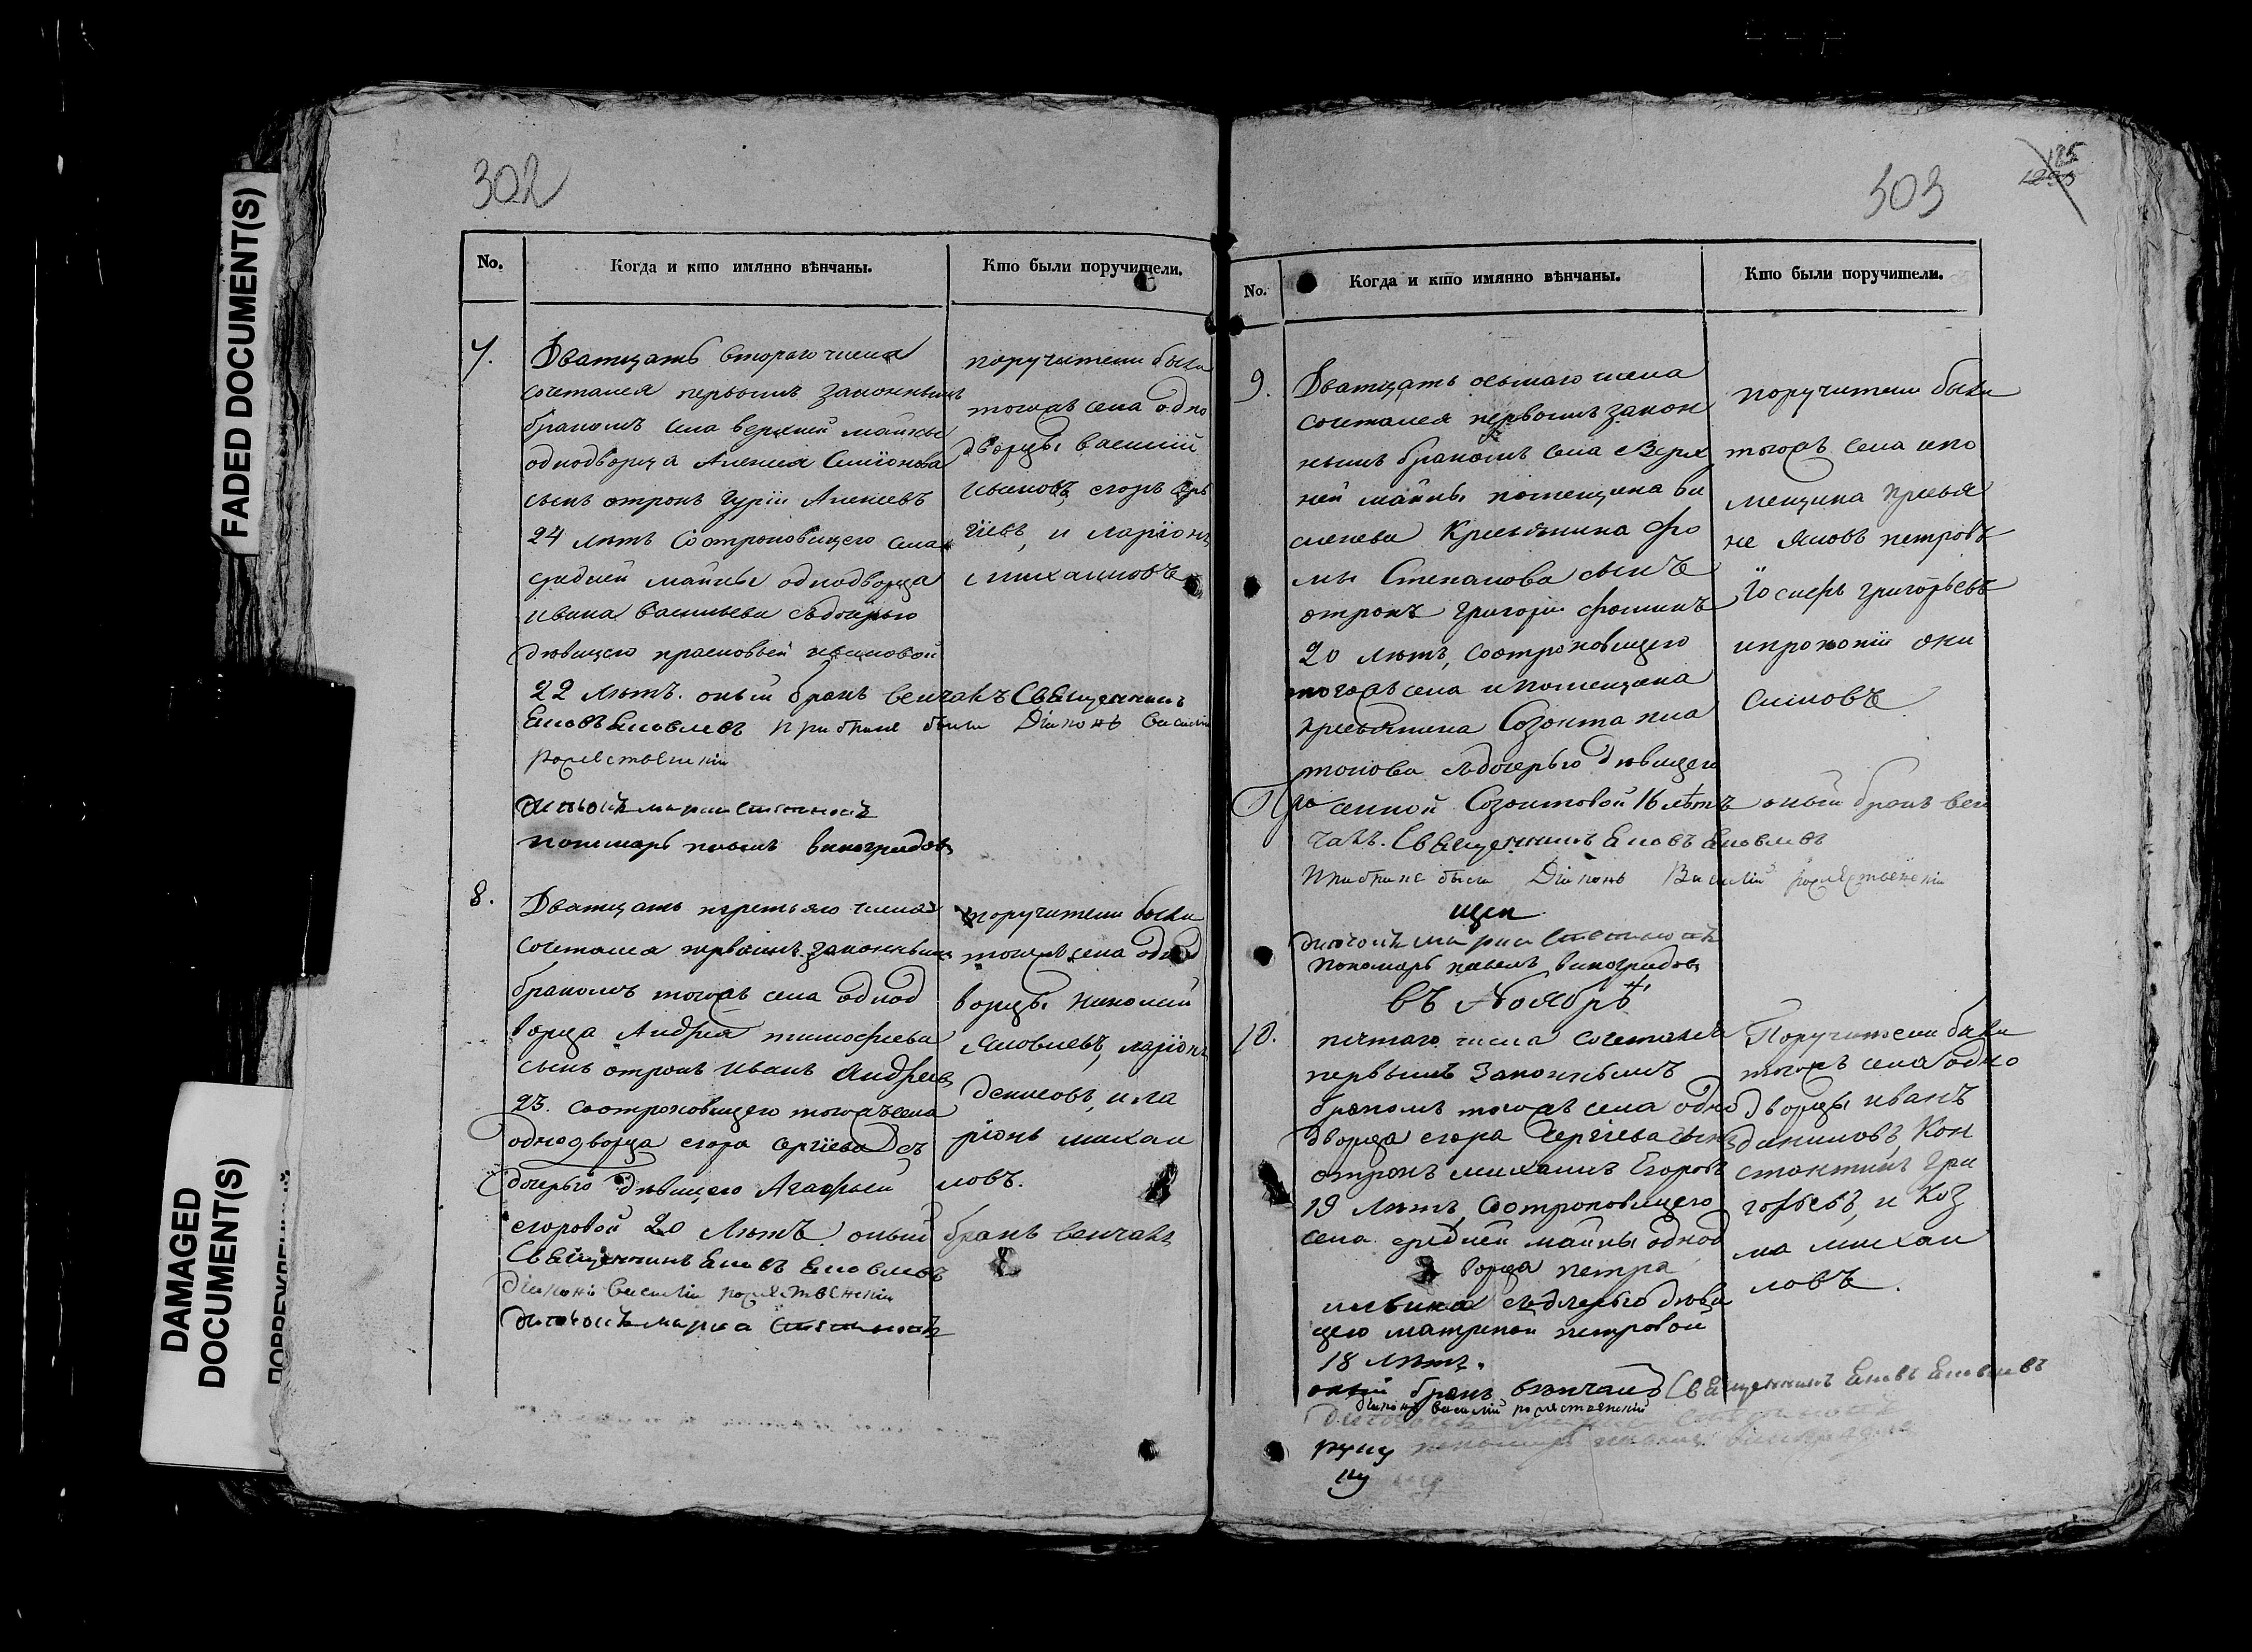 302
No.
Когда и кто имянно вѣнчаны.
Кто были поручители.
7.
Дватцать втораго числа
сочетался первымъ законнымъ
бракомъ села верхней майны
однодворца Алексея Симіонова
сынъ отрокъ Гурій Алексевъ
24 лѣтъ Соотроковицею села
средней майны однодворца
ивана васильева съдочерью
дѣвицею прасковьей ивановой
22 лѣтъ. оный бракъ венчалъ Священникъ
ЕковъЕковлевъ при браке были Діаконъ Василій
рожественскій
дьячокъ
пономарь павелъ виноградовъ
поручители были
тогожъ села одно
дворцы василій
ивановъ, егоръ сер
гіевъ, и ларіонъ
михаиловъ
8.
Дватцать третьяго числа
сочетался первымъ законнымъ
бракомъ тогожъ села однод
ворца Андрея тимофеева
сынъ отрокъ иванъ Андреевъ
23. соотроковицею тогожъ села
однодворца егора сергіева съ
дочерью дѣвицею Агафьей
егоровой 20 лѣтъ. оный бракъ венчалъ
Священникъ Ековъ Ековлевъ
Діаконъ Василій рожественскій
дьячокъ
поручители были
тогожъ села одно
ворцы николай
Яковлевъ, ларіонъ
денисовъ, и ла
ріонъ михаи
ловъ.
503
125
No.
Когда и кто имянно вѣнчаны.
Кто были поручители.
9.
Дватцать осьмаго числа
сочетался первымъ закон
нымъ бракомъ села Верх
ней майны помещика
Крестьянина Фо
мы Степанова сынъ
отрокъ григорій фоминъ
20 лѣтъ, соотроковицею
тогожъ села и помещика
крестьянина Созонта пла
тонова съдочерью дѣвицею
Пра сковой Созонтовой 16 лѣтъ оный бракъ вен
чалъ. Священникъ Ековъ Ековлевъ
При браке были Діаконъ Василій рожественскій
дьячокъ
пономарь павелъ виноградовъ
поручители были
тогожъ села и по
мещика крестья
не Яковъ петровъ
Іосифъ григорьевъ
и прокопій они
симовъ
въ Ноябрѣ
10.
пятаго числа сочетался
первымъ Законнымъ
бракомъ тогожъ села одно
дворца егора Сергіева сынъ
отрокъ михаилъ Егоровъ
19 лѣтъ соотроковицею
села средней майны однод
ворца петра
ильина съдочерью дѣви
цею матреной петровой
18 лѣтъ.
оный бракъ венчалъ Священникъ Ековъ Ековлевъ
діаконъ василій рожественскій
руку
Поручители были
тогожъ села одно
дворцы иванъ
даниловъ, Кон
стантинъ Гри
горьевъ, и Коз
ма михаи
ловъ.
FADED DOCUMENT(S)
DAMAGED
DOCUMENT(S)